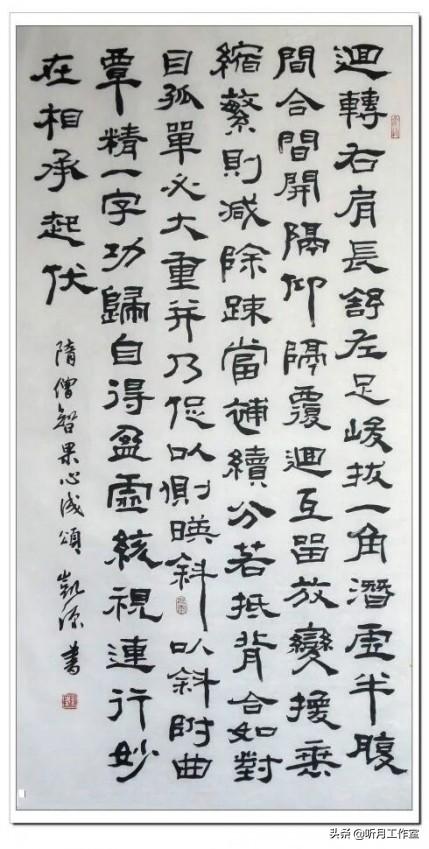 迴轉右肩長舒左足峻拔一角潛虛半腹
間合間開隔仰隔覆迴互留放變換垂
縮繁則減除踈當補續分若抵背合如對
目孤單必大重并乃促以側暎斜以斜附曲
覃精一字功歸自得盈虛核視連行妙
在相承起伏
隋僧智果心成頌 凱源書
头条 @听月工作室